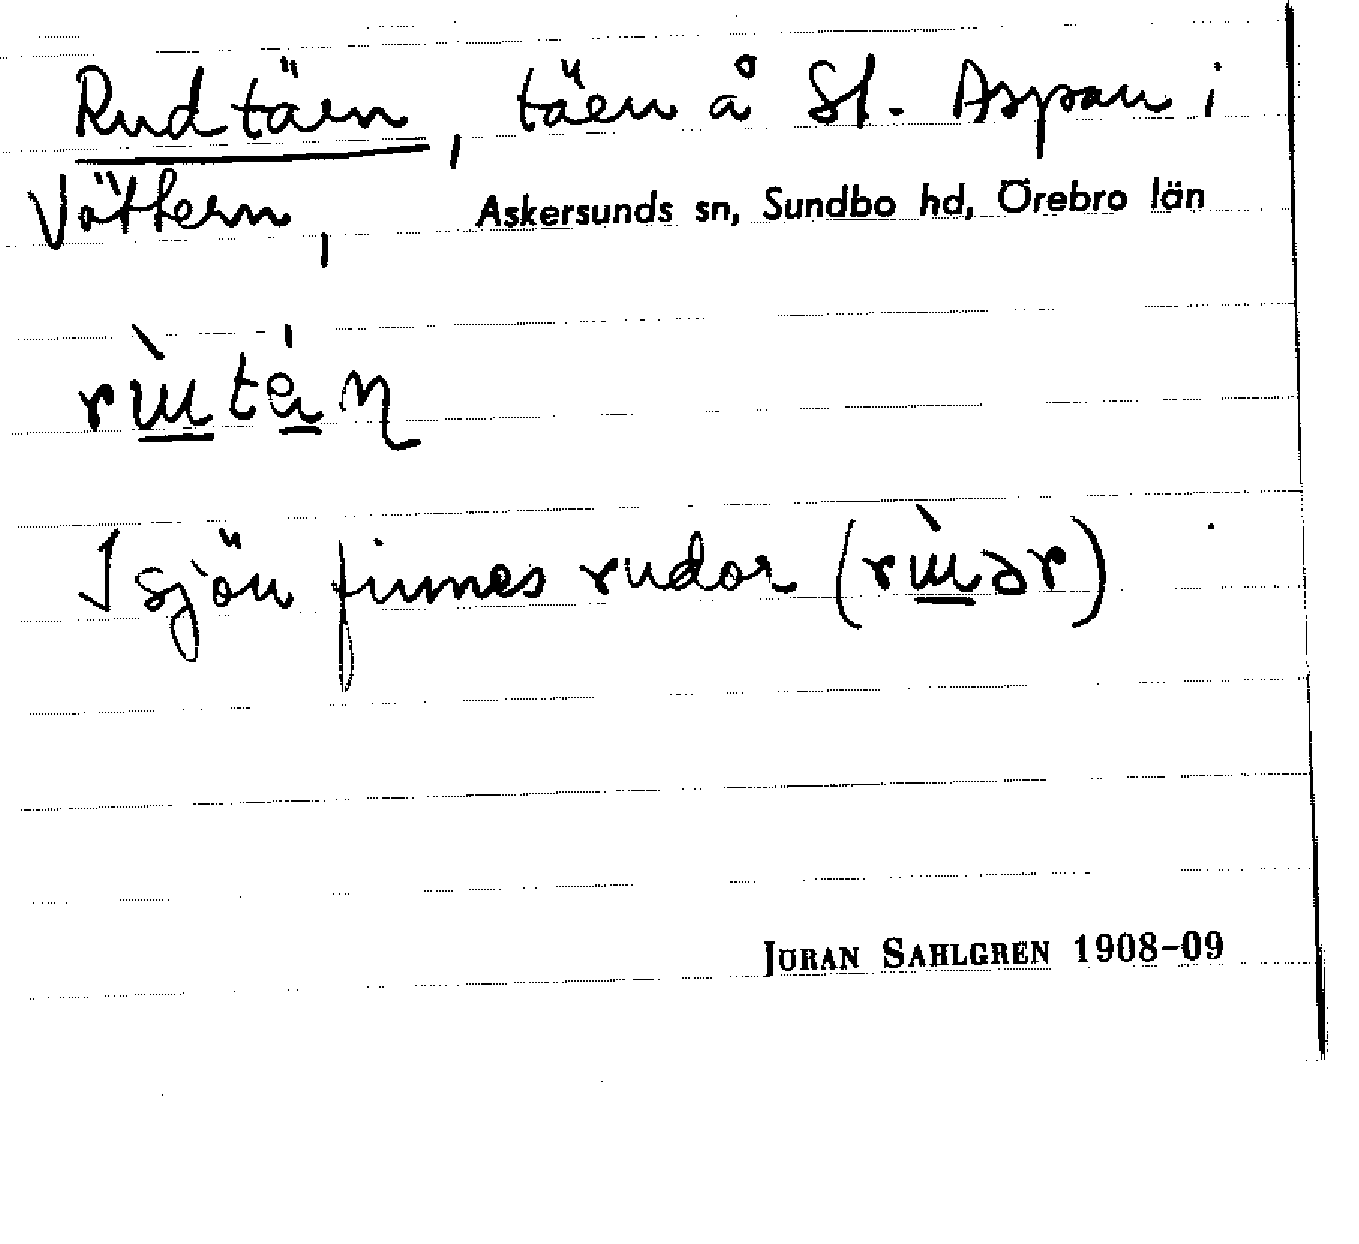 Rudtäen, täen å St. Aspan i
Vättern, Askersunds sn, Sundbo hd, Örebro län
I sjön finnes rudor
JÖRAN SAHLGREN 1908-09